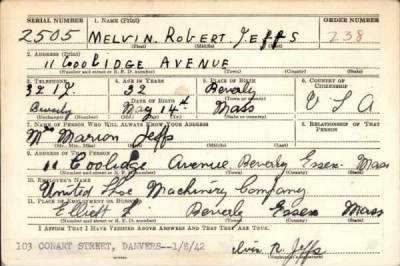 SERIAL NUMBER 1. NAME (Print) ORDER NUMBER
2505 MELVIN. ROBERT. JEFFS 238
(First) (Middle) (Last)
2. ADDRESS (Print)
11 COOLIDGE AVENUE
(Number and street or R. F. D. number) (Town) (County) (State)
3. TELEPHONE 4. AGE IN YEARS 5. PLACE OF BIRTH 6. COUNTRY OF CITIZENSHIP
32 Beverly
DATE OF BIRTH U S A
Beverly May 14th Mass
7. NAME OF PERSON WHO WILL ALWAYS KNOW YOUR ADDRESS 8. RELATIONSHIP OF THAT PERSON
Mrs Marion Jeffs
(Mr., Mrs., Miss) (First) (Middle) (Last)
9. ADDRESS OF THAT PERSON
11 Coolidge Avenue Beverly Essex Mass
(Number and street or R. F. D. number) (Town) (County) (State)
10. EMPLOYER'S NAME
United Shoe Machinery Company
11. PLACE OF EMPLOYMENT OR BUSINESS
Elliott St Beverly Essex Mass
(Number and street or R. F. D. number) (Town) (County) (State)
I AFFIRM THAT I HAVE VERIFIED ABOVE ANSWERS AND THAT THEY ARE TRUE.
103 CONANT STREET, DANVERS--1/8/42 elvin R. Jeffs